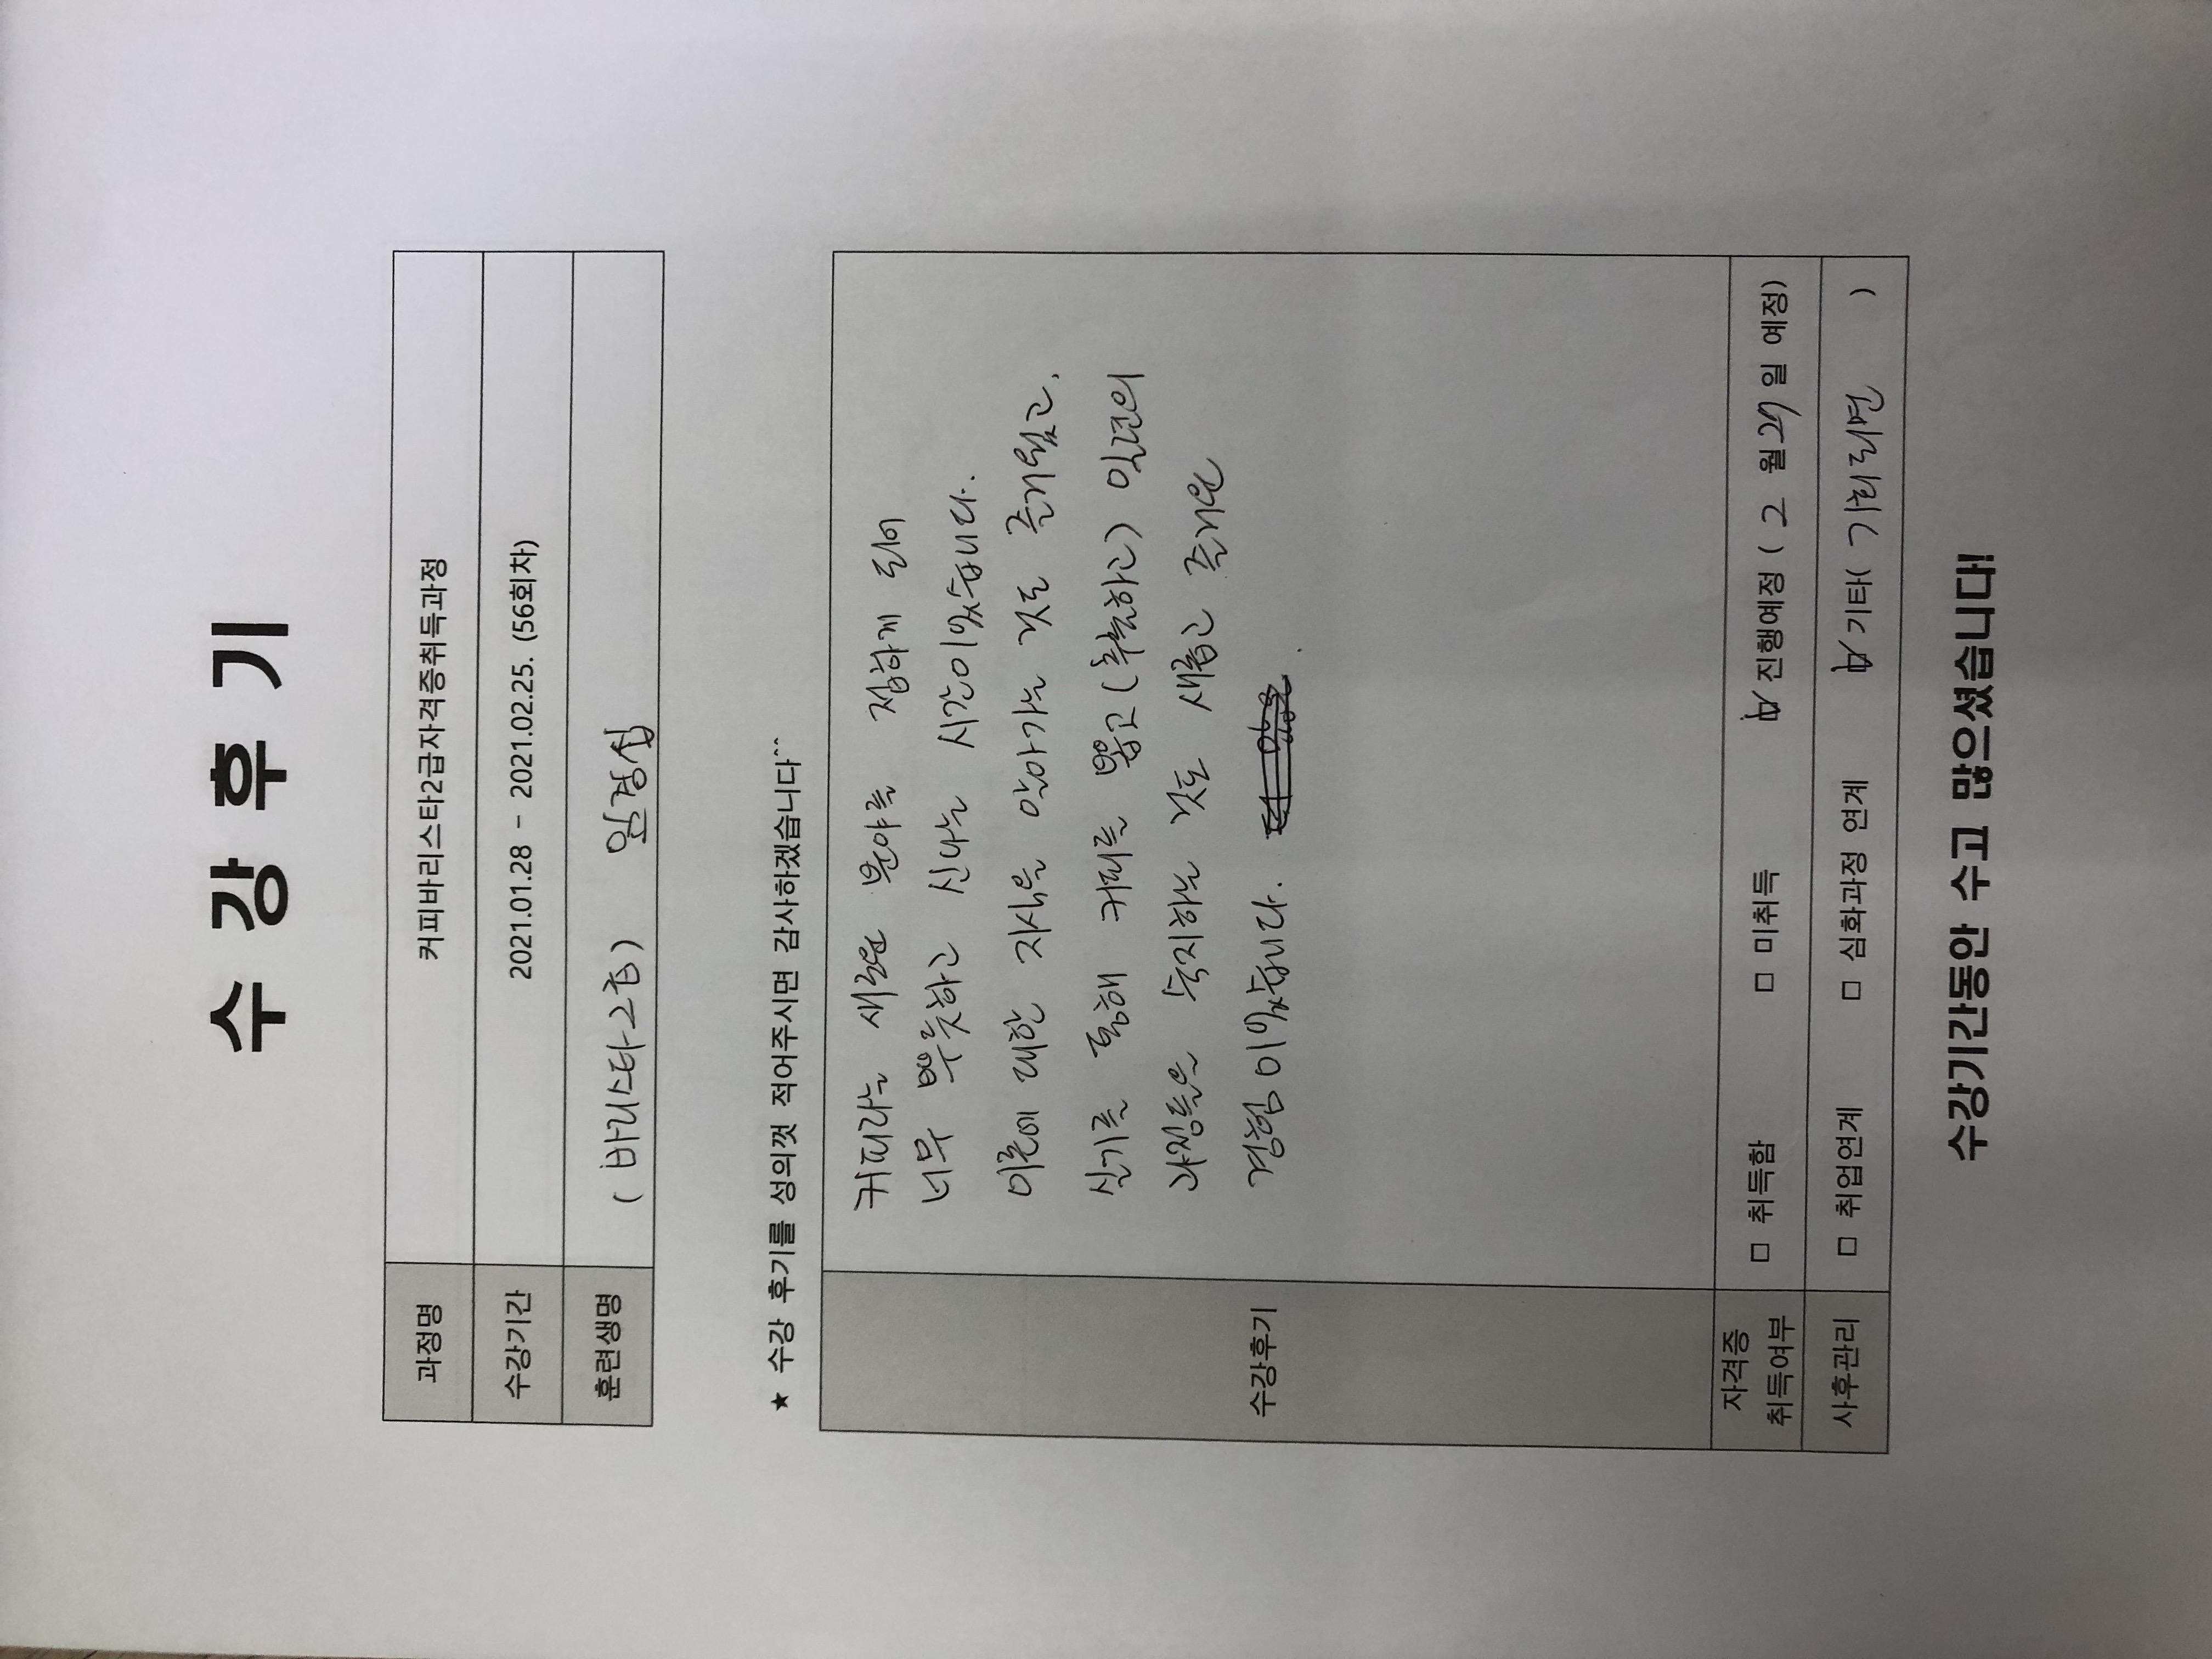 수 강 후 기
과정명 커피바리스타2급자격증취득과정
수강기간 2021.01.28 - 2021.02.25. (56회차)
훈련생명 (바리스타2급) 임경섭
★ 수강 후기를 성의껏 적어주시면 감사하겠습니다^^
수강후기
커피라는 새로운 분야를 접하게 되어
너무 뿌듯하고 신나는 시간이었습니다.
이론에 대한 지식을 알아가는 것도 즐거웠고,
실기를 통해 커피를 뽑고(추출하고) 일련의
과정들을 숙지하는 것도 새롭고 즐거운
경험이었습니다.
자격증 취득여부 □ 취득함 □ 미취득 ☑ 진행예정 ( 2 월 일 예정)
사후관리 □ 취업연계 □ 심화과정 연계 ☑ 기타( )
수강기간동안 수고 많으셨습니다!